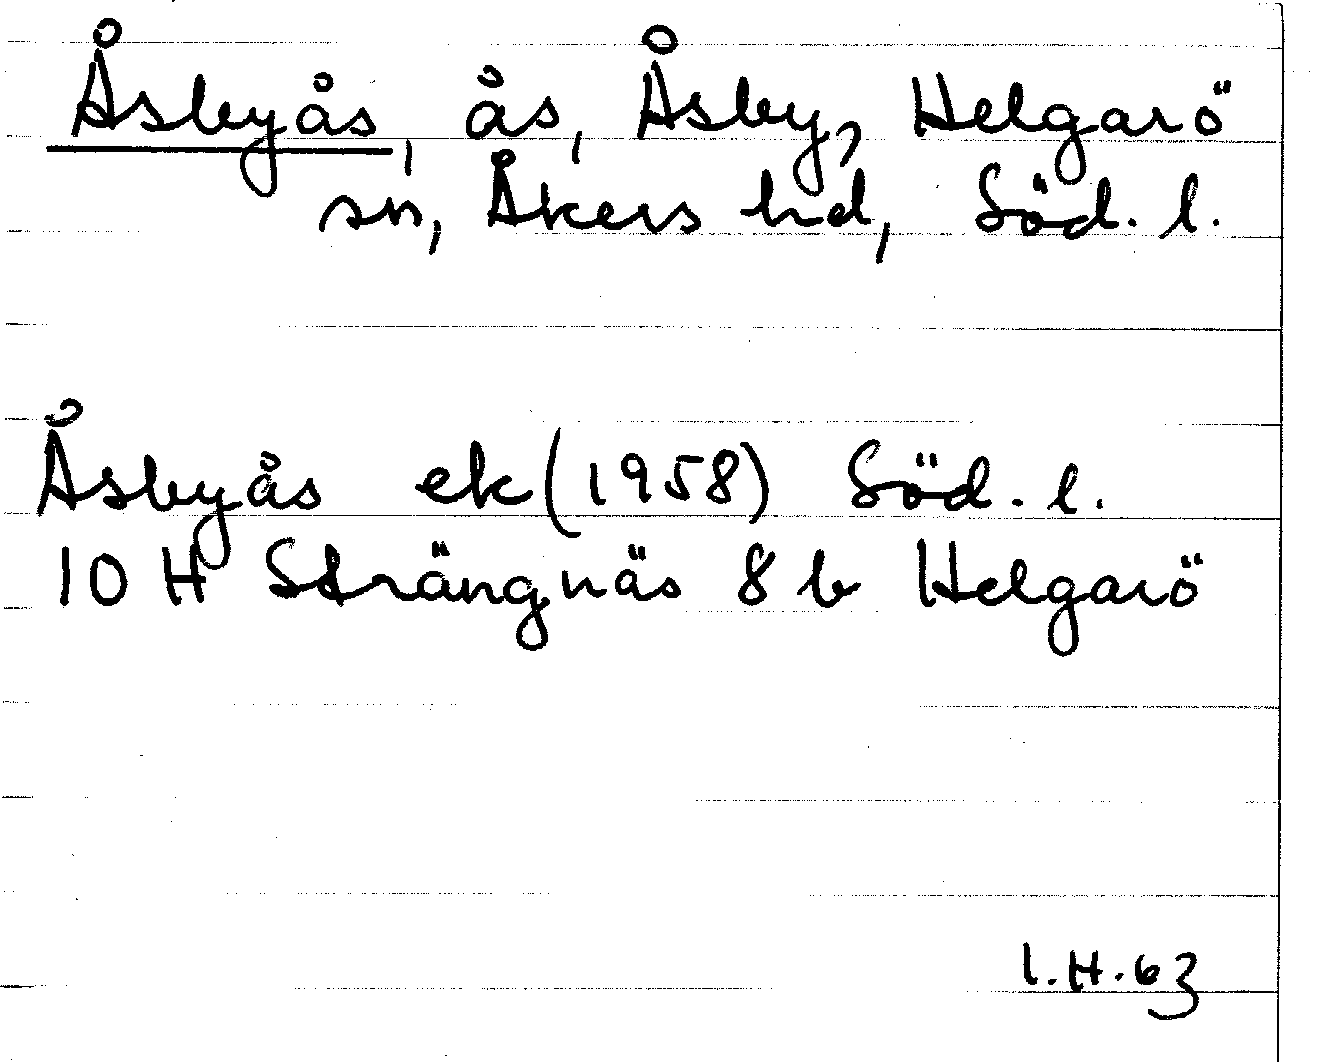 Åsbyås, ås, Åsby, Helgarö
sn, Åkers hd, Söd. l.
Åsbyås ek (1958) Söd. l.
10 H Strängnäs 8 b Helgarö
I.H.63